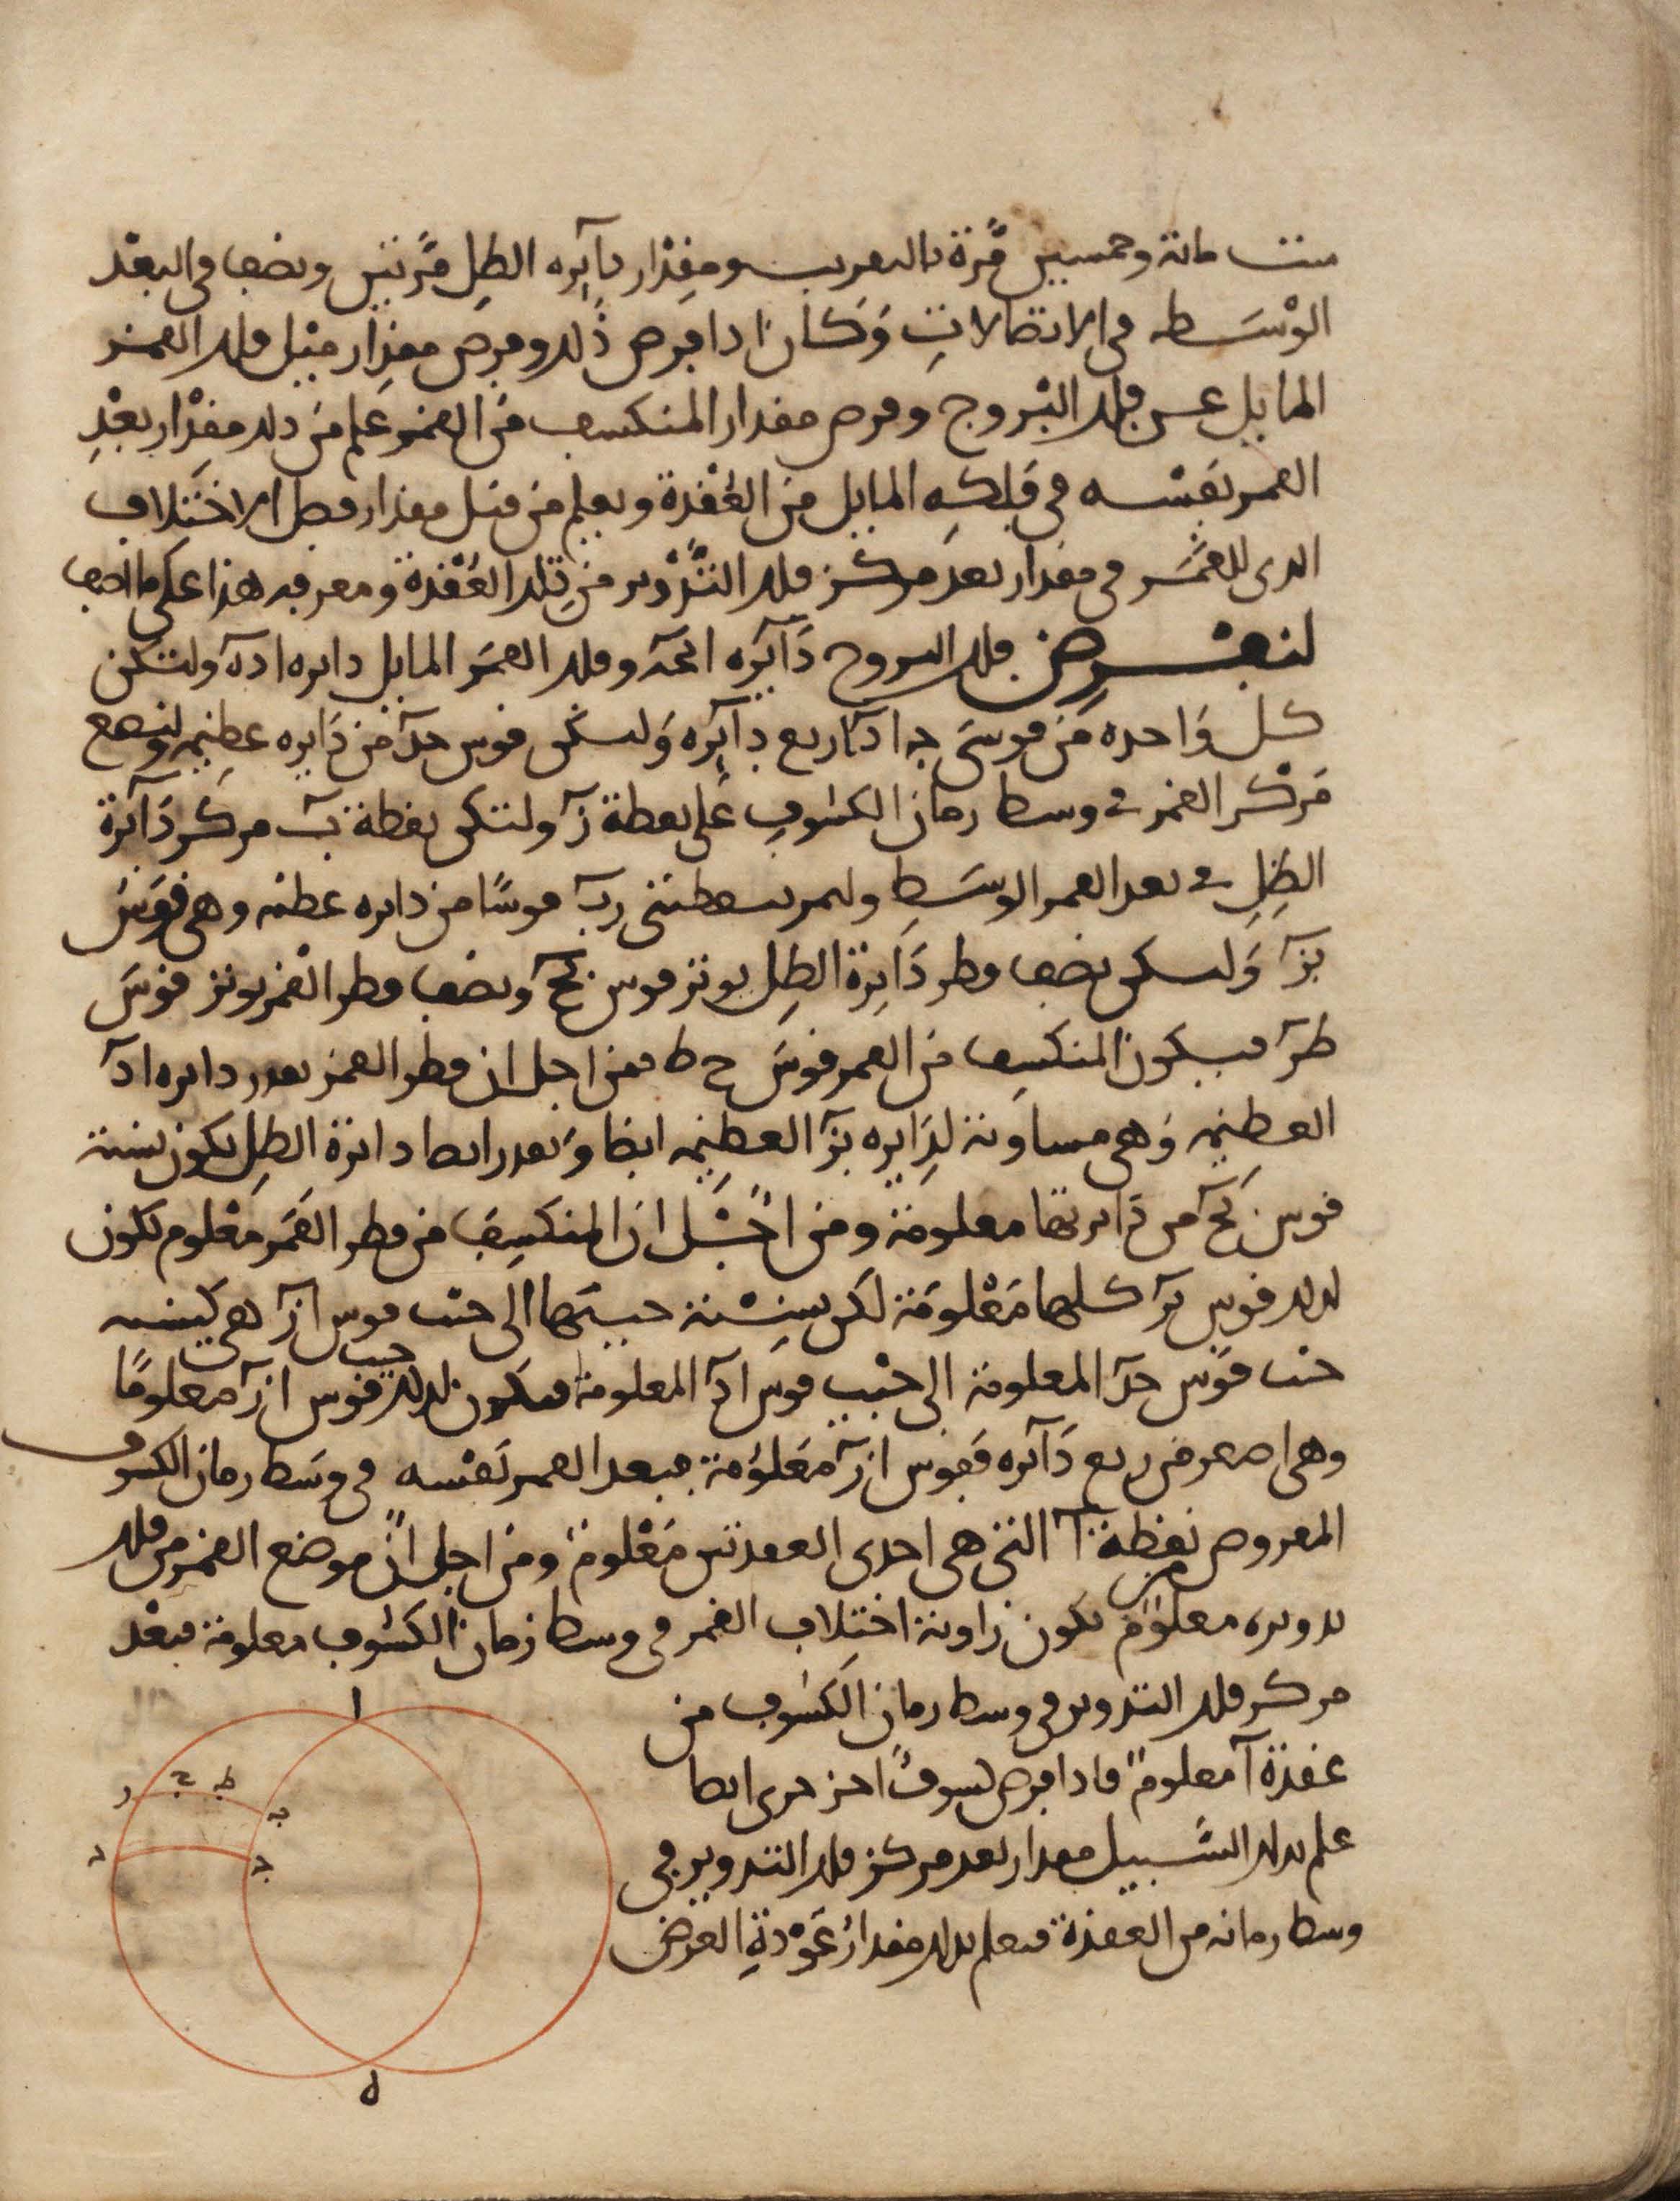 ست مائة وخمسين مرة بالتقريب ومقدار دائره الظل مرتين ونصف في البعد
الوسط في الاتصالات وكان اذا فرض ذلك وفرض مقدار ميل فلك القمر
المايل عن فلك البروج وفرض مقدار المنكسف من القمر علم من ذلك مقدار بعد
القمر نفسه في فلكه المايل من العقدة ويعلم من قبل مقدار فصل الاختلاف
الذى للقمر في مقدار بعد مركز فلك التدوير من تلك العقدة ومعرفه هذا على ما اصف
لنفرض فلك البروج دائره ابجه وفلك القمر المايل دايره اده ولتكن
كل واحده من قوسى جا ادا ربع دائره ولتكن قوس جد من دايره عظيمه ولنضع
مركز القمر في وسط زمان الكسوف على نقطة ز ولتكن نقطة ب مركز دائرة
الظل في بعد القمر الوسط ولتمر بنقطتى زب قوسا من دايره عظمه وهي قوس
بز وليكن نصف قطر دايرة الظل يوتر قوس بح ونصف قطر القمر يوتر قوس
طز فيكون المنكسف من القمر قوس ح ط فمن اجل ان قطر القمر بقدر دايره اد
العظيمه وهي مساوية لدايره بز العظيمه ايضا وبقدر ايضا دائرة الظل يكون نسبة
قوس بح من دايرتها معلومة ومن اجل ان المنكسف من قطر القمر معلوم تكون
لذلك قوس بز كلها معلومة لكن نسبة جيبها الى جيب قوس از هي كنسبه
جيب قوس جد المعلومة الى جيب قوس اد المعلومة فيكون لذلك جيب قوس از معلوما
وهي اصغر من ربع دائره فقوس از معلومة فبعد القمر نفسه في وسط زمان الكسوف
المفروض من نقطة ا التى هي احدى العقدتين معلومة ومن اجل ان موضع القمر من فلك
تدويره معلوم تكون زاوية اختلاف القمر في وسط زمان الكسوف معلومة فبعد
مركز فلك التدوير في وسط زمان الكسوف من
عقدة ا معلوم فاذا فرض كسوف اخر جزى ايضا
علم بذلك السبيل مقدار بعد مركز فلك التدوير في
وسط زمانه من العقدة فيعلم بذلك مقدار عودة العرض
ا
ز ح ط ب
د ج
ه